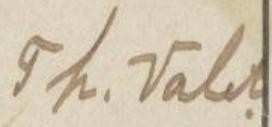 Th. Valet